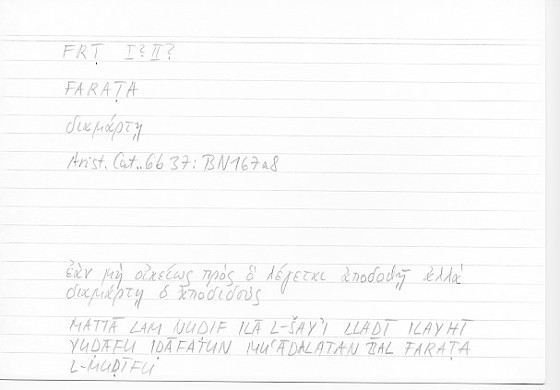 FRṬ I? II?
FARAṬA
διαμάρτῃ
Arist. Cat. 6b 37: BN 167a8
ἐὰν μὴ οἰκείως πρὸς ὃ λέγεται ἀποδοθῇ ἀλλὰ
διαμάρτῃ ὁ ἀποδιδούς
MATTĀ LAM NUḌIF ILĀ L-ŠAY'I LLAḎĪ ILAYHI
YUḌĀFU IḌĀFATUN MU'ĀDALATAN BAL FARAṬA
L-MUḌĪFU